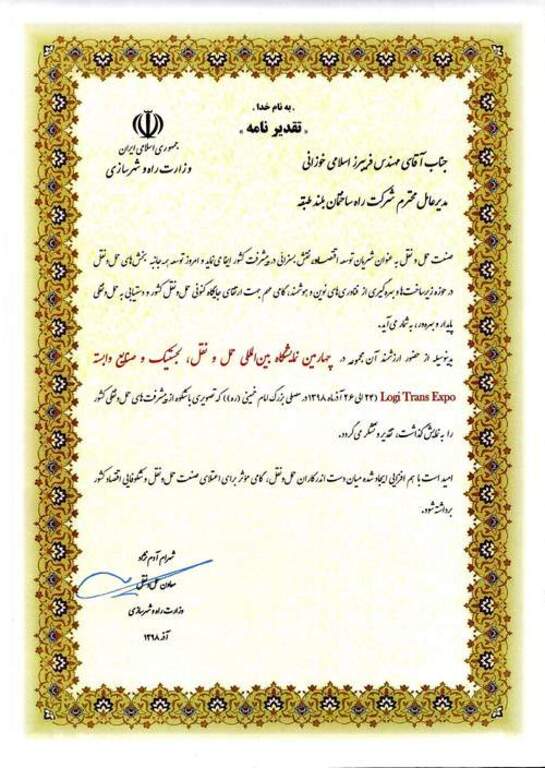 به نام خدا
« تقدیر نامه »
جمهوری اسلامی ایران
وزارت راه و شهرسازی
جناب آقای مهندس فریبرز اسلامی خوزانی
مدیرعامل محترم شرکت راه ساختمان بلند طبقه
صنعت حمل و نقل به عنوان شریان توسعه اقتصادی، نقش بسزایی در پیشرفت کشور ایفا می نماید و امروز توسعه همه جانبه بخش های حمل و نقل
در حوزه زیرساخت ها و بهره گیری از فناوری های نوین و هوشمند، گامی مهم جهت ارتقای جایگاه کنونی حمل و نقل کشور و دستیابی به حمل و نقلی
پایدار و بهره ور، به شمار می آید.
بدینوسیله از حضور ارزشمند آن مجموعه در چهارمین نمایشگاه بین المللی حمل و نقل، لجستیک و صنایع وابسته
Logi Trans Expo (۲۳ الی ۲۶ آذرماه ۱۳۹۸ در مصلی بزرگ امام خمینی (ره)) که تصویری باشکوه از پیشرفت های حمل و نقلی کشور
را به نمایش گذاشت، تقدیر و تشکر می گردد.
امید است با هم افزایی ایجاد شده میان دست اندرکاران حمل و نقل، گامی مؤثر برای اعتلای صنعت حمل و نقل و شکوفایی اقتصاد کشور
برداشته شود.
شهرام آدم نژاد
معاون حمل و نقل
وزارت راه و شهرسازی
آذر ۱۳۹۸